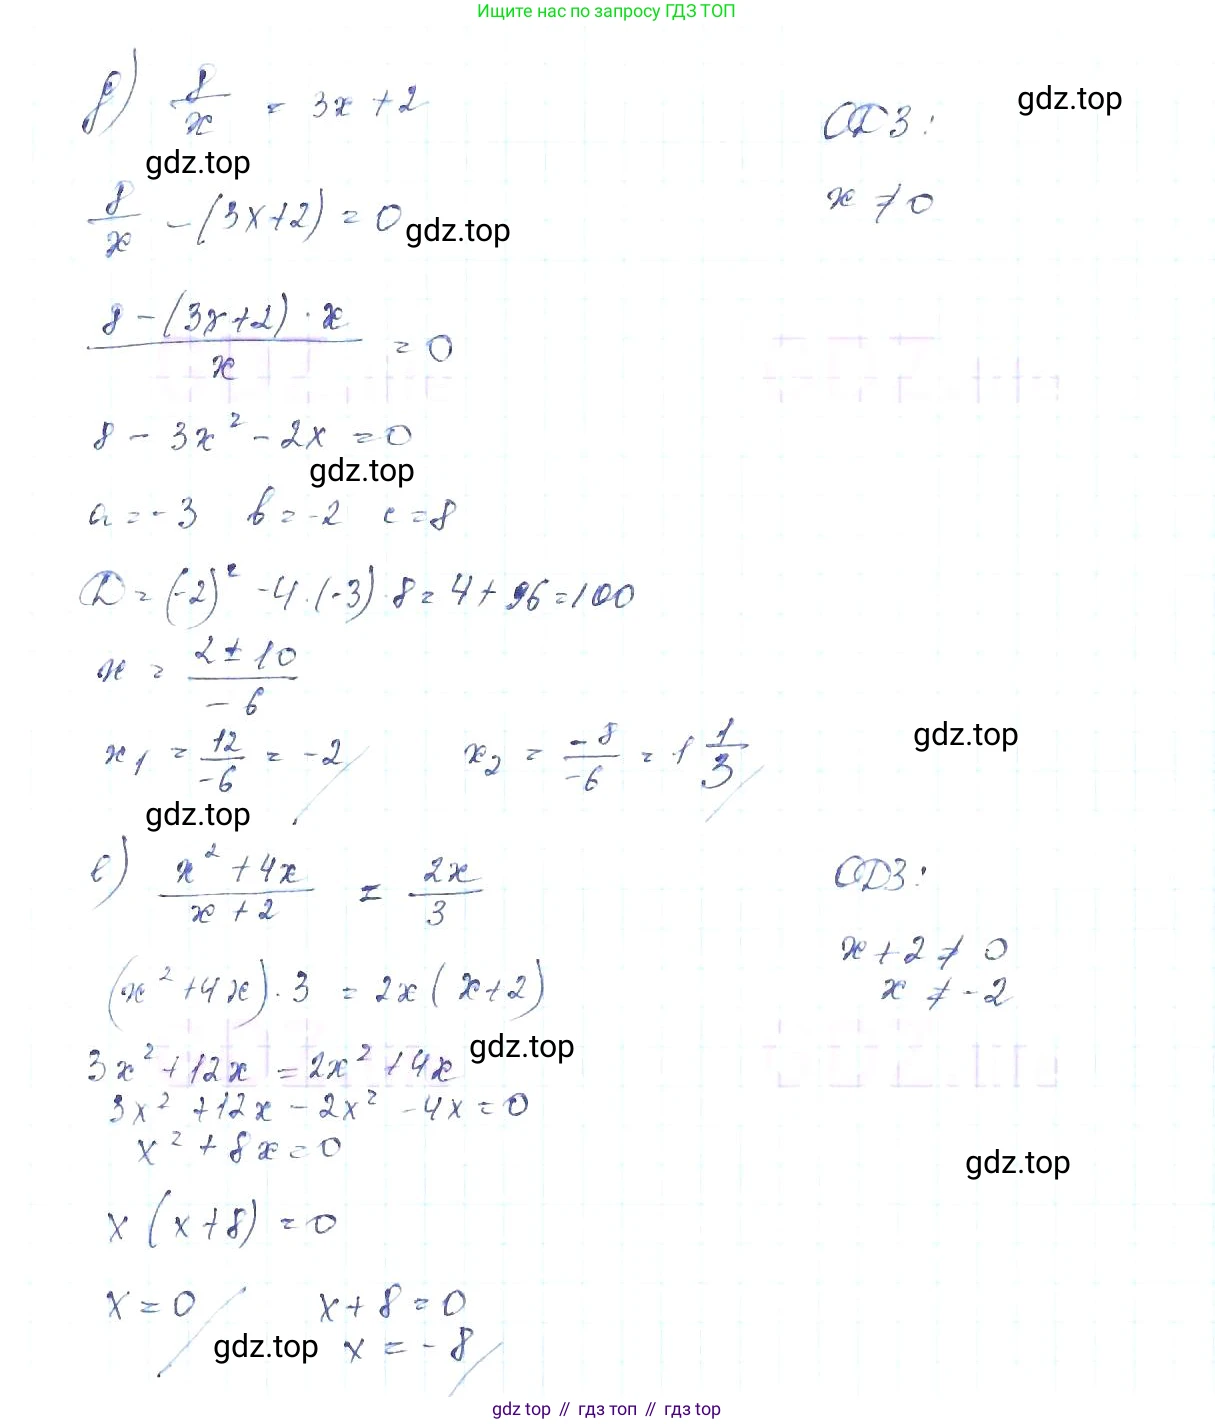 Ищите нас по запросу ГДЗ ТОП
д) 8/x = 3x + 2
ОДЗ:
gdz.top
gdz.top
x ≠ 0
8/x - (3x+2) = 0
gdz.top
(8 - (3x+2) · x)/x = 0
8 - 3x² - 2x = 0
gdz.top
a = -3 b = -2 c = 8
D = (-2)² - 4 · (-3) · 8 = 4 + 96 = 100
x = (2 ± 10)/(-6)
x₁ = 12/(-6) = -2 x₂ = -8/-6 = 1 1/3
gdz.top
gdz.top
е) (x² + 4x)/(x + 2) = 2x/3
ОДЗ:
x + 2 ≠ 0
x ≠ -2
(x² + 4x) · 3 = 2x (x+2)
3x² + 12x = 2x² + 4x
gdz.top
3x² + 12x - 2x² - 4x = 0
x² + 8x = 0
gdz.top
x (x+8) = 0
x = 0 x + 8 = 0
gdz.top x = -8
gdz.top // гдз топ // gdz.top